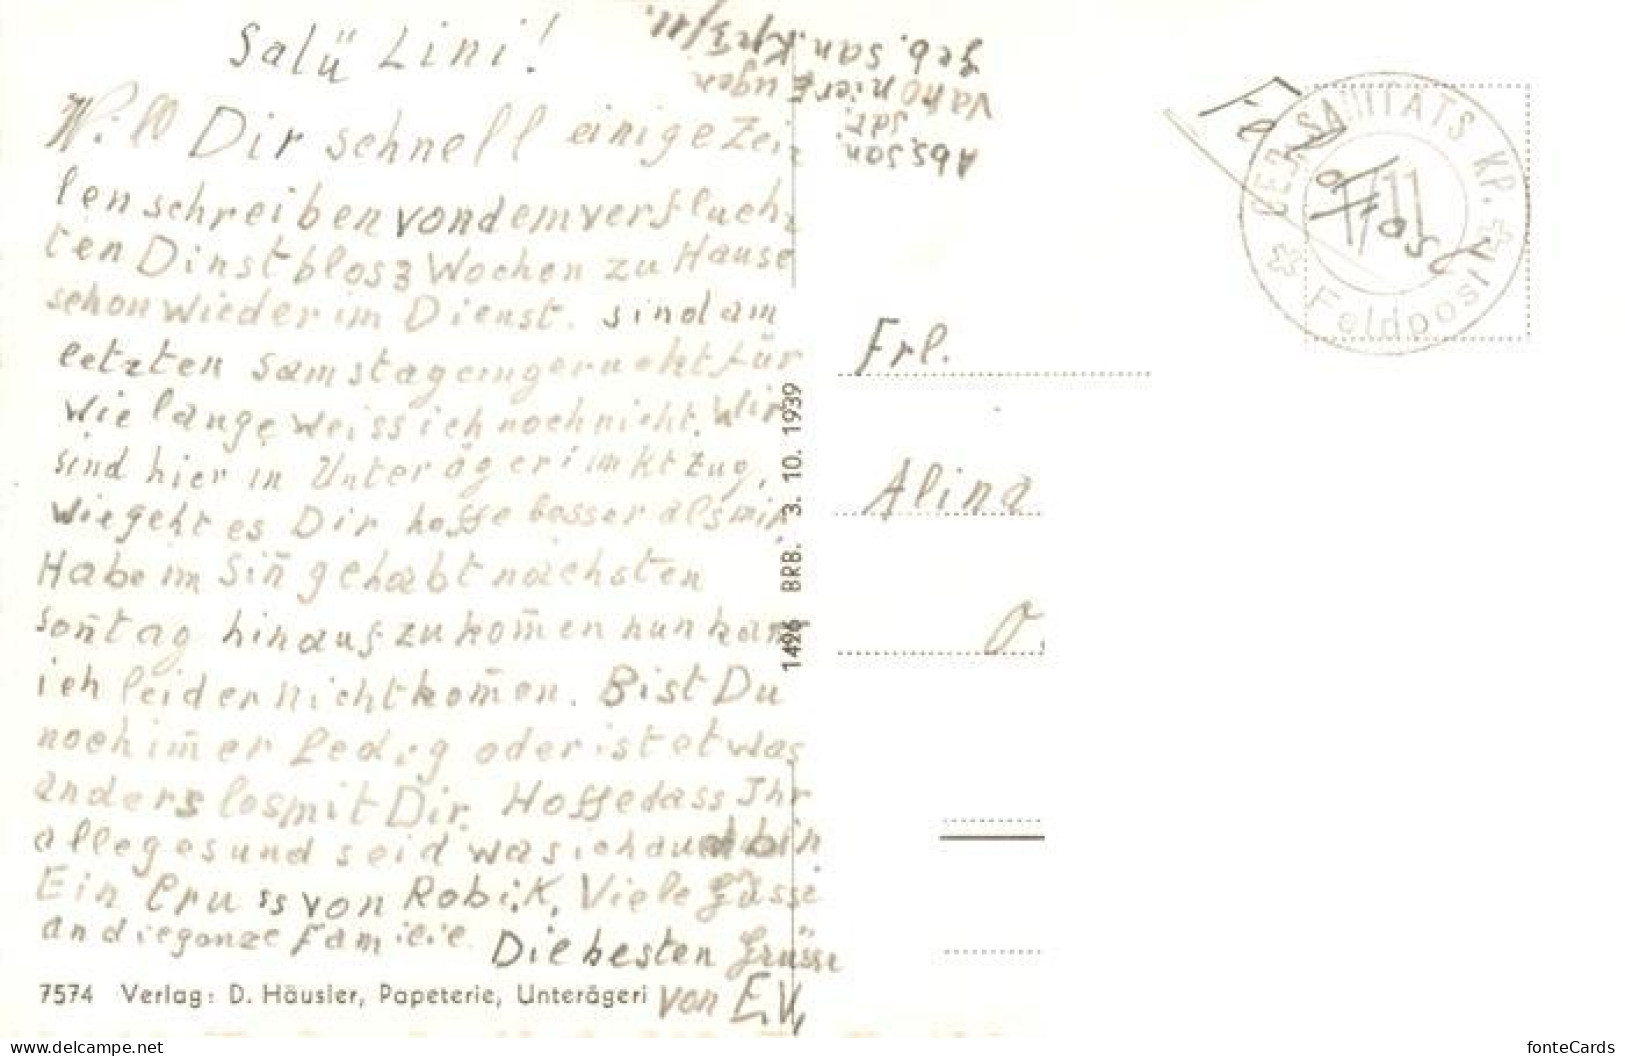 Salü Lini!
Will Dir schnell einige Zei-
len schreiben von dem verfluch-
ten Dinst blos 3 Wochen zu Hause
schon wieder im Dienst. sind am
letzten Samstag eingeruckt für
wie lange weiss ich noch nicht. Wir
sind hier in Unterägeri im Kt Zug,
wie geht es Dir hoffe besser als mir
Habe im Siñ gehabt nächsten
Soñtag hinaus zu kom̄en nun kan
ich leider nicht kom̄en. Bist Du
noch im̄er ledig oder ist etwas
anders los mit Dir. Hoffe dass Ihr
alle gesund seid was ich auch bin
Ein Gruss von Robi.K, Viele Grüsse
an die ganze Familie. Die besten Grüsse
von E.V,
7574 Verlag: D. Häusler, Papeterie, Unterägeri
1426 BRB. 3. 10. 1939
Abs. san.
sar.
geb. san. Kp I/11.
Feldpost
GEB SANITÄTS KP.
I/11
Feldpost
Frl.
Alina
O.
fonteCards
www.delcampe.net